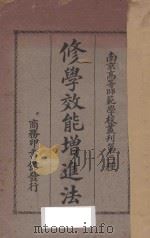 南京高等師範學校叢刊第一種
修學效能增進法
商務印書館發行